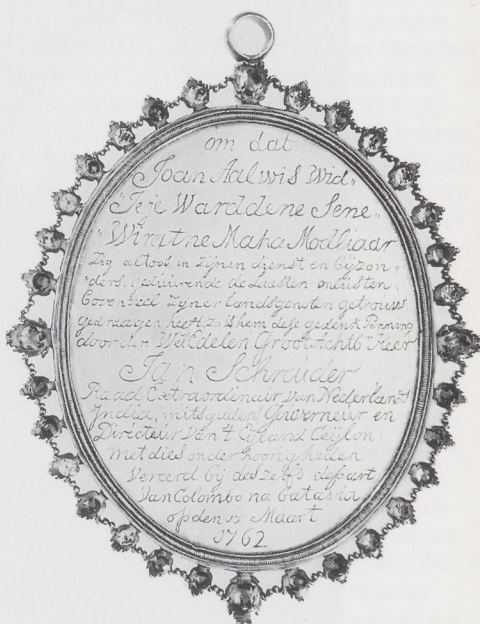 om dat
Joan Aalwis Wid„
„Jeje Warddene Sene„
„Wiratne Maha Modliaar
Zig altoos in zijnen dienst en bijzon„
„ders, geduurende de laasten onlusten
boven veel zyner landsgenoten getrouw
gedraagen heeft, zo is hem dese gedenk Penning
door den WelEdelen Groot Achtb: Heer
Jan Schreuder
Raad Extraordinair van Nederlands
India, mitsgaders Gouverneur en
Directeur van 't Eyland Ceijlon
met dies onderhoorigheden
Vereerd bij deszelfs depart
van Colombo na batavia
op den 17 Maart
1762